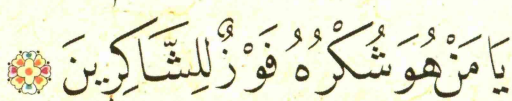 يَا مَنْ هُوَ شُكْرُهُ فَوْزٌ لِلشَّاكِرِينَ